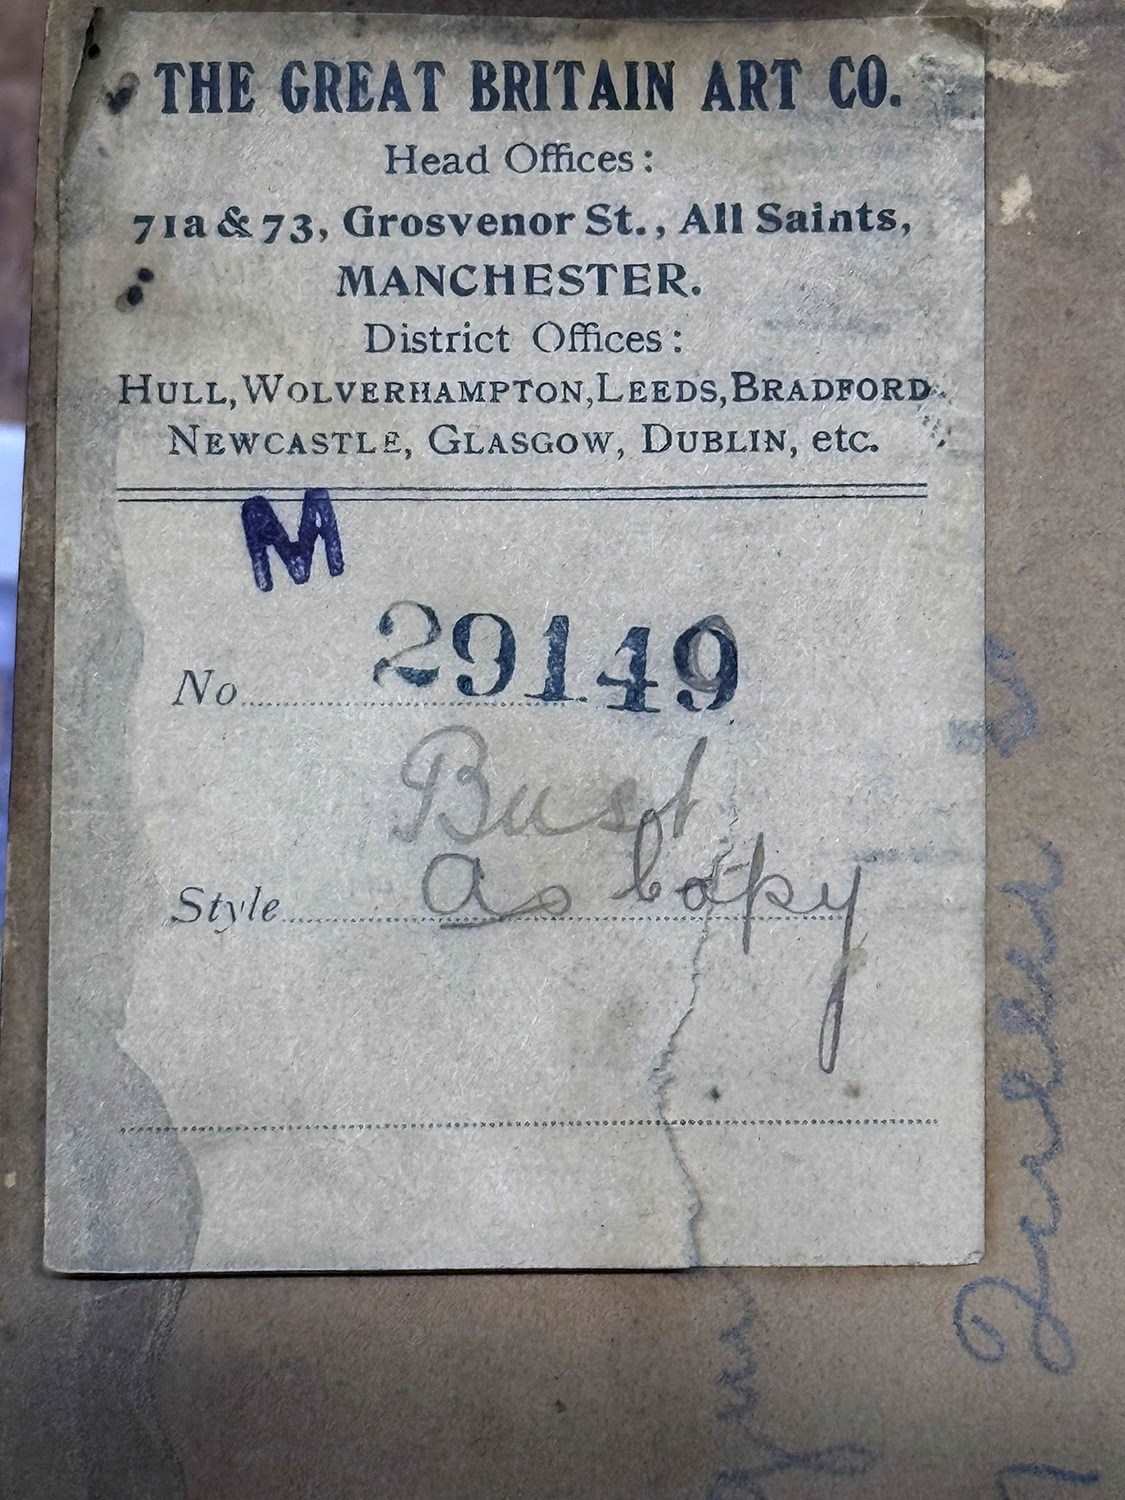 THE GREAT BRITAIN ART CO.
Head Offices:
71a & 73, Grosvenor St., All Saints,
MANCHESTER.
District Offices:
HULL, WOLVERHAMPTON, LEEDS, BRADFORD
NEWCASTLE, GLASGOW, DUBLIN, etc.
M
No. 29149
Bust
Style as Copy